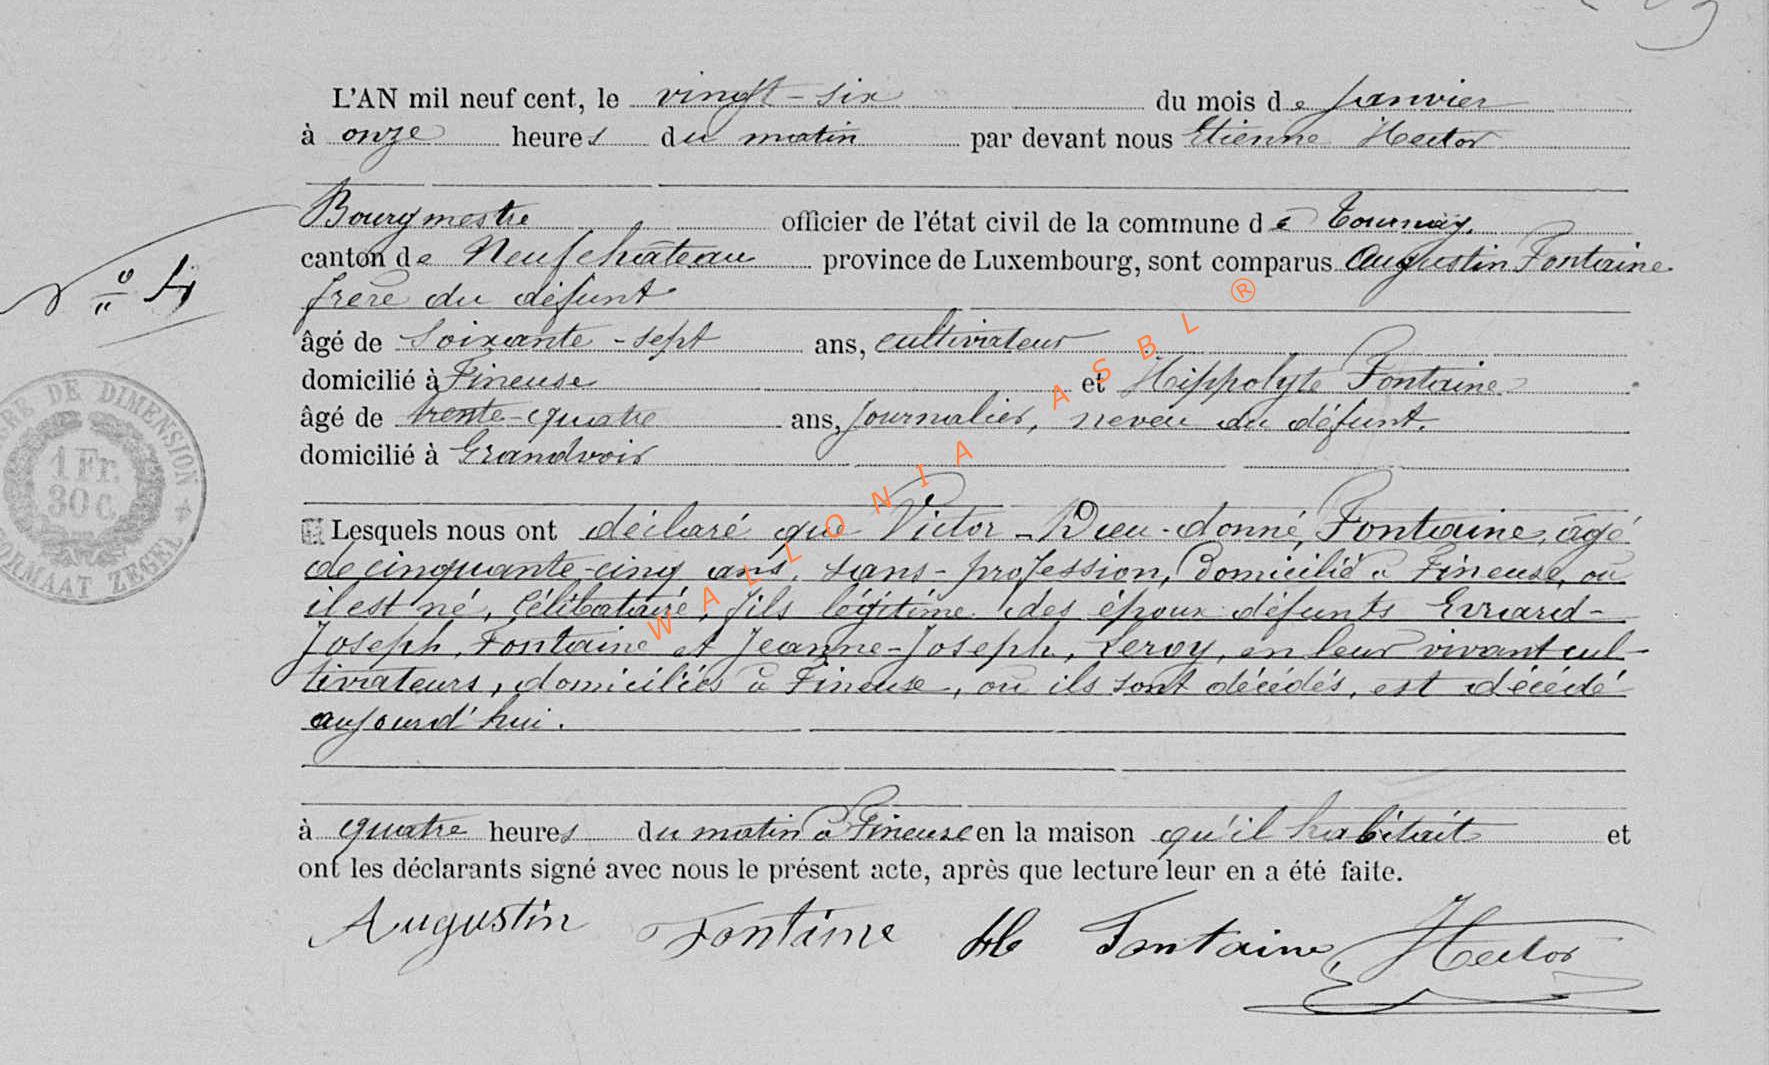 L'AN mil neuf cent, le vingt-six du mois de Janvier
à onze heures du matin par devant nous Etienne Hector
Bourgmestre officier de l'état civil de la commune de Tournay.
canton de Neufchâteau province de Luxembourg, sont comparus Augustin Fontaine
frère du défunt
n° 4
âgé de soixante-sept ans, cultivateur
domicilié à Fineuse et Hippolyte Fontaine
âgé de trente-quatre ans, Journalier, neveu du défunt.
domicilié à Grandvoir
DE DIMENSION
1 Fr.
30 c.
FORMAAT ZEGEL
Lesquels nous ont déclaré que Victor-Dieu-donné, Fontaine, âgé
de cinquante-cinq ans, sans-profession, Domicilié à Fineuse, où
il est né, Célibataire, fils légitime des époux défunts Evrard-
Joseph, Fontaine et Jeanne-Joseph, Leroy, en leur vivant cul-
tivateurs, domiciliés à Fineuse, où ils sont décédés, est décédé
aujourd'hui.
à quatre heures du matin à Fineuse en la maison qu'il habitait et
ont les déclarants signé avec nous le présent acte, après que lecture leur en a été faite.
Augustin Fontaine H Fontaine Hector
WALLONIA ASBL ®